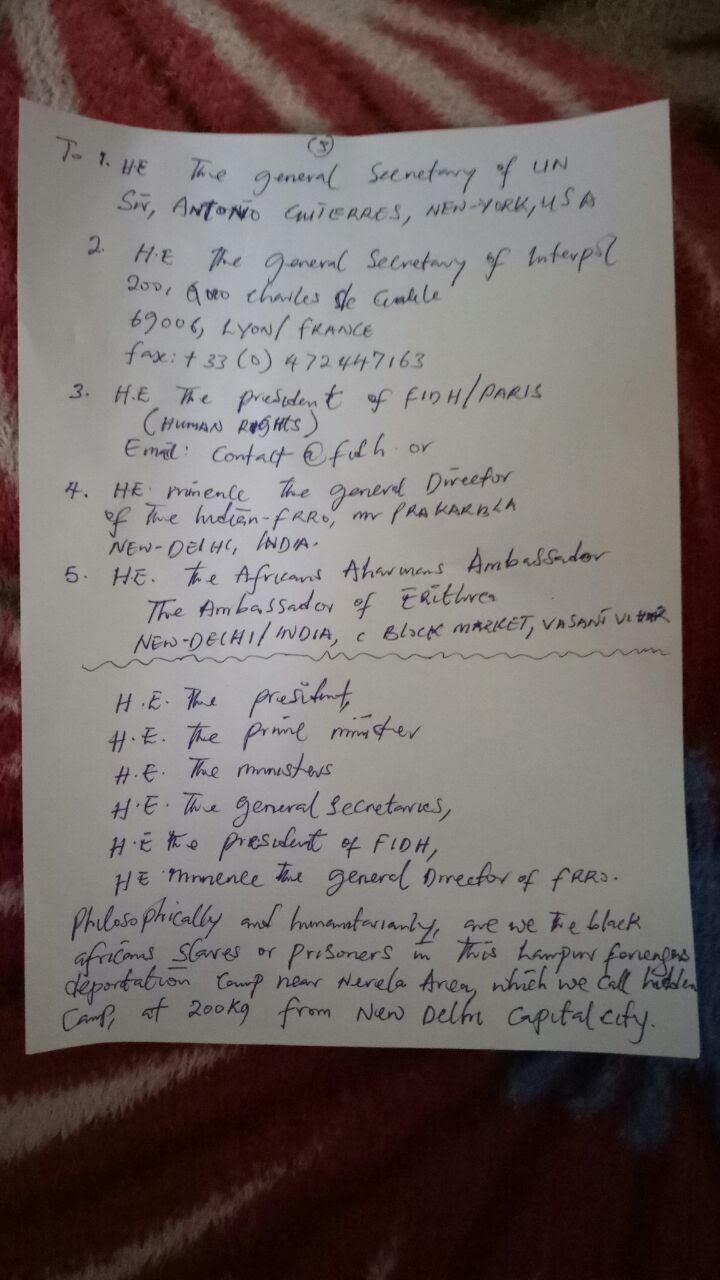 (5)
To 1. H.E The general Secretary of UN
Sir, ANTONIO GUITERRES, NEW-YORK, USA
2. H.E The general Secretary of Interpol
200, Charles de
69006, LYON/ FRANCE
fax: + 33 (0) 472447163
3. H.E The president of FIDH/PARIS
(HUMAN RIGHTS)
Email: Contact @ fidh. or
4. HE. minence The general Director
of The Indian-FRRO, mr PRAKARBLA
NEW-DELHI, INDIA.
5. HE. The Africans Ambassador
The Ambassador of Erithrea
NEW-DELHI/INDIA, C BLOCK MARKET, VASANT VIHAR
H.E. The president,
H.E. The prime minister
H.E. The ministers
H.E. The general Secretaries,
H.E The president of FIDH,
HE minence The general Director of FRRO.
Philosophically and humanitarianly, are we the black
africans slaves or prisoners in this Lampur foriengers
deportation Camp near Nerela Area, which we call hidden
Camp, at 200Kg from New Delhi Capital city.